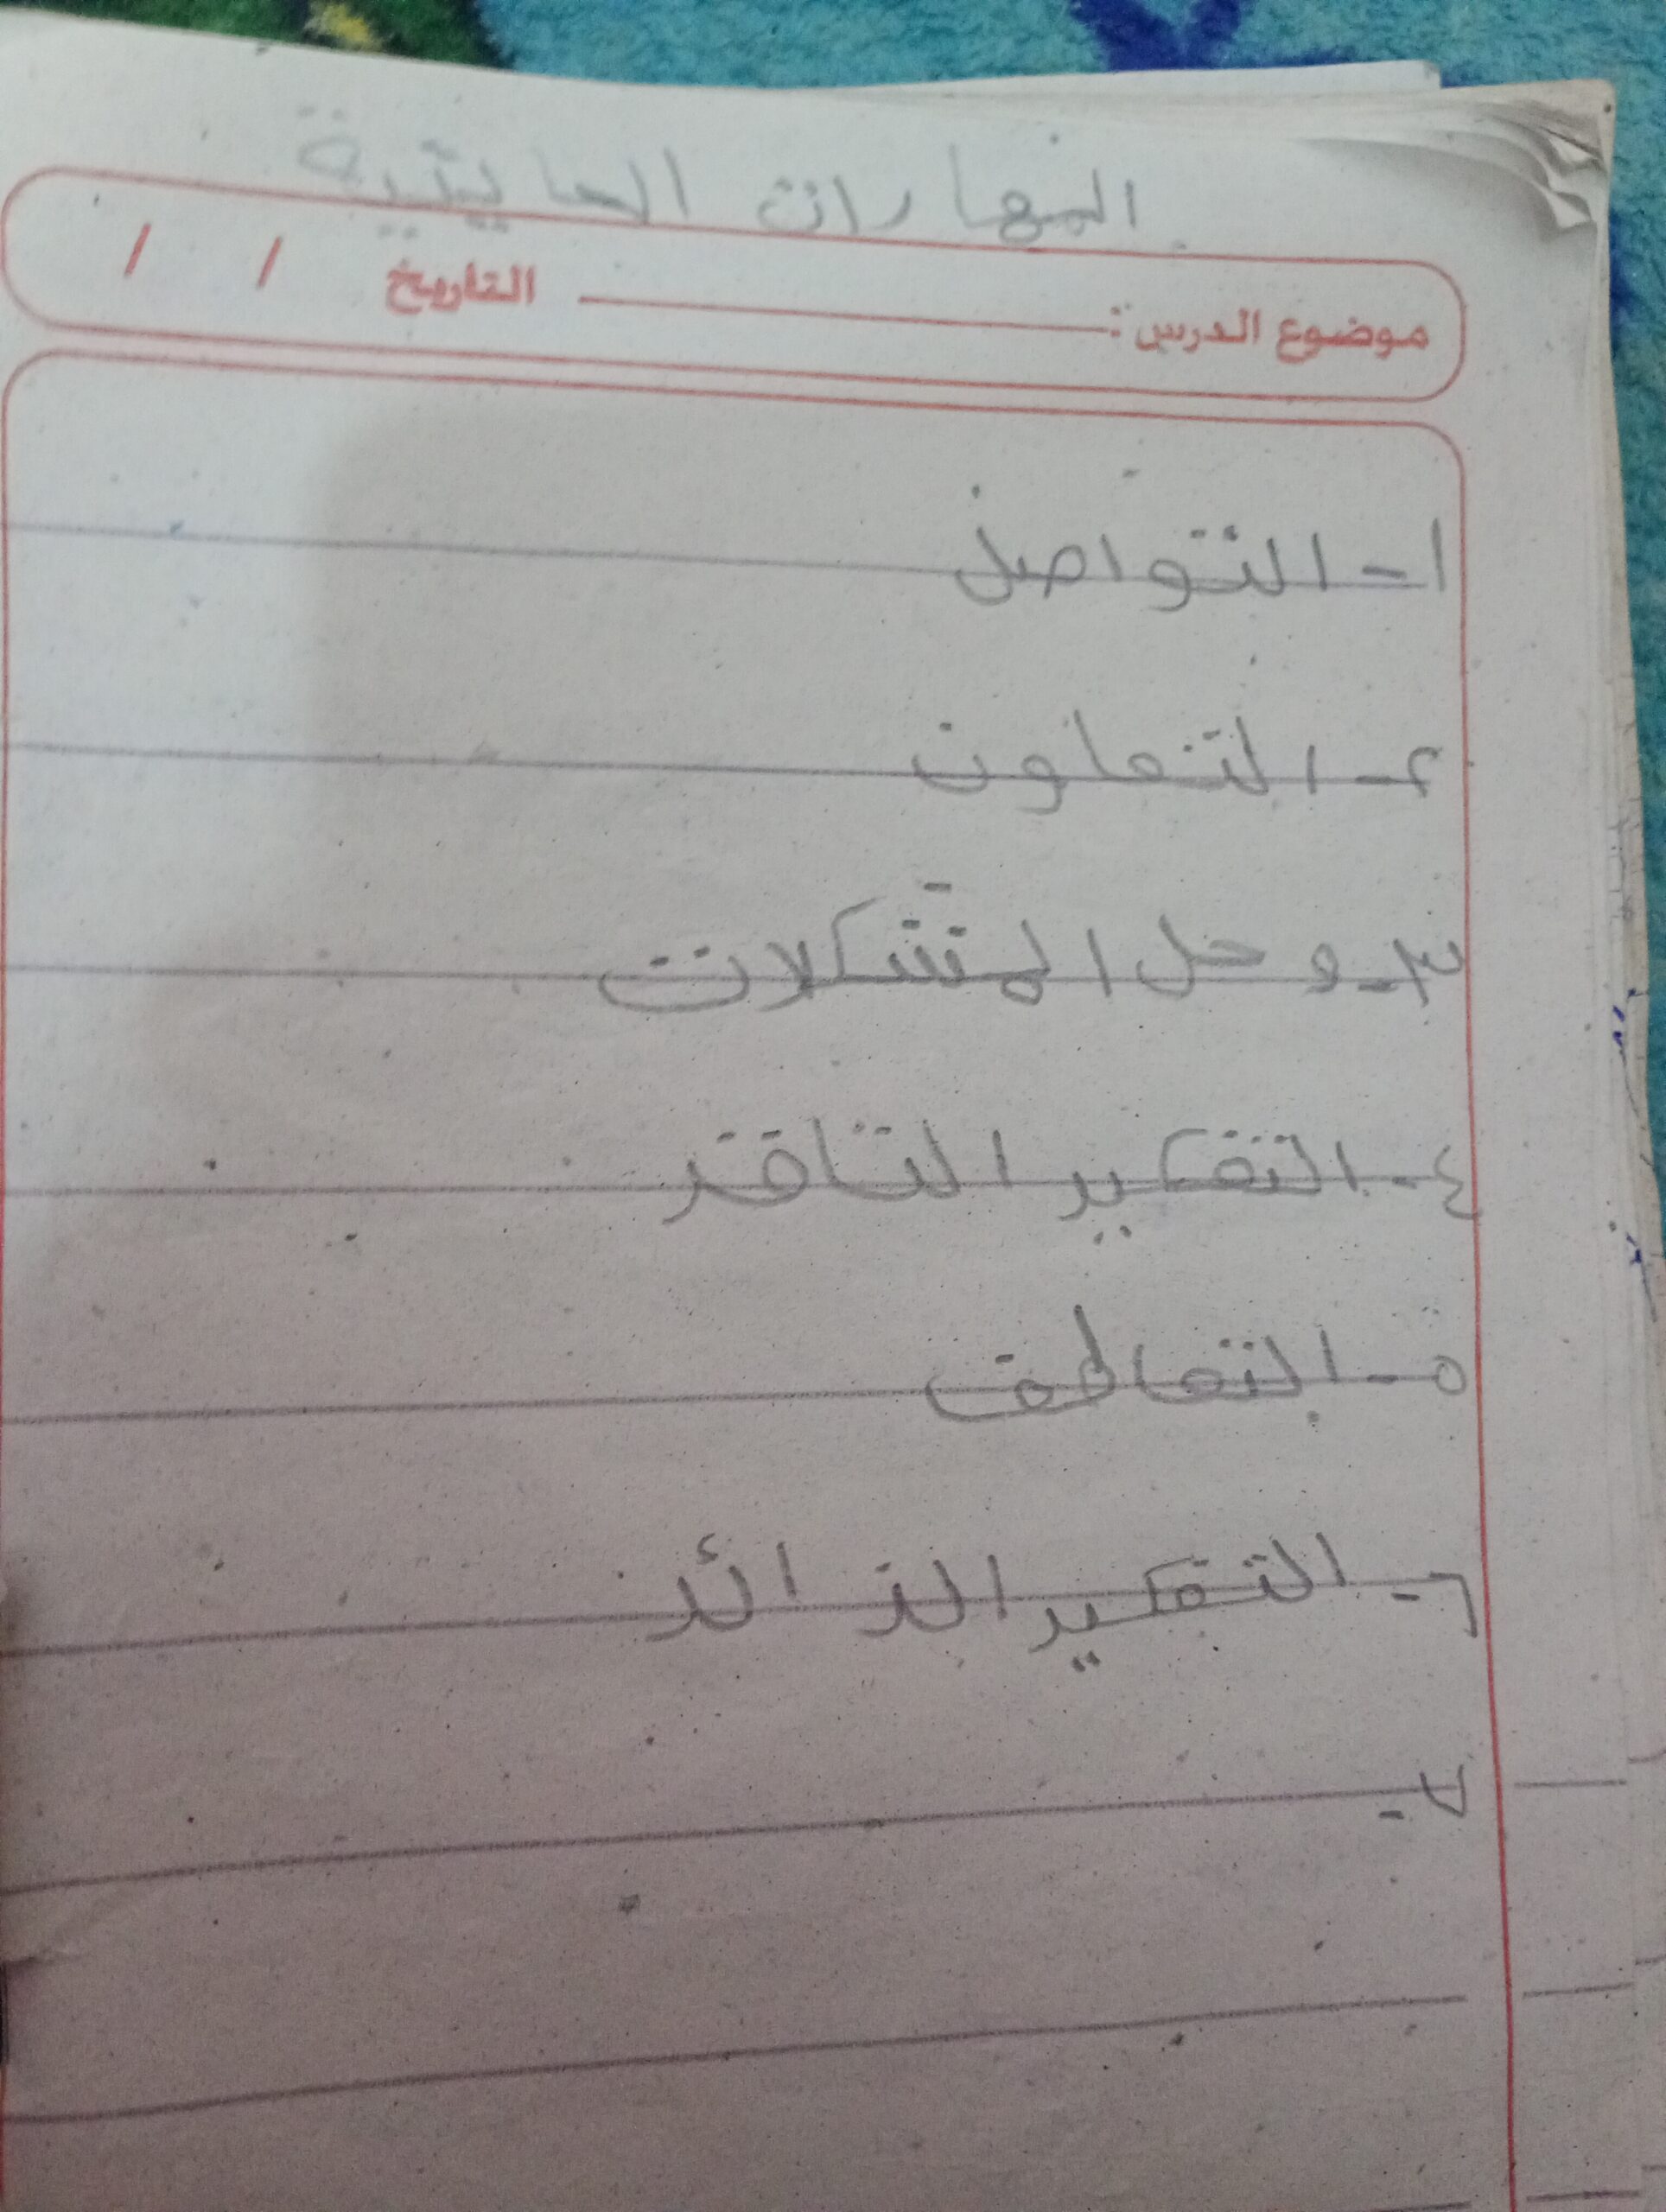 المهارات الحايتية
موضوع الدرس: التاريخ / /
١- التواصل
٢- التعاون
٣- وحل المشكلات
٤- التفكير التاقد
٥- التعاطف
٦- التفكير الذ ائد
٧-